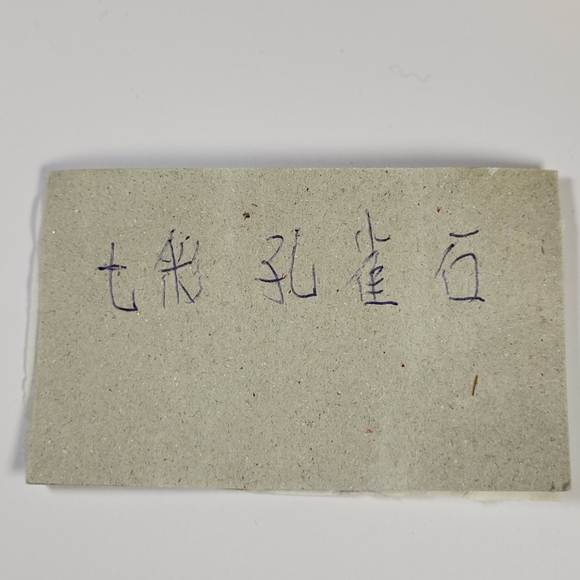 七彩孔雀石